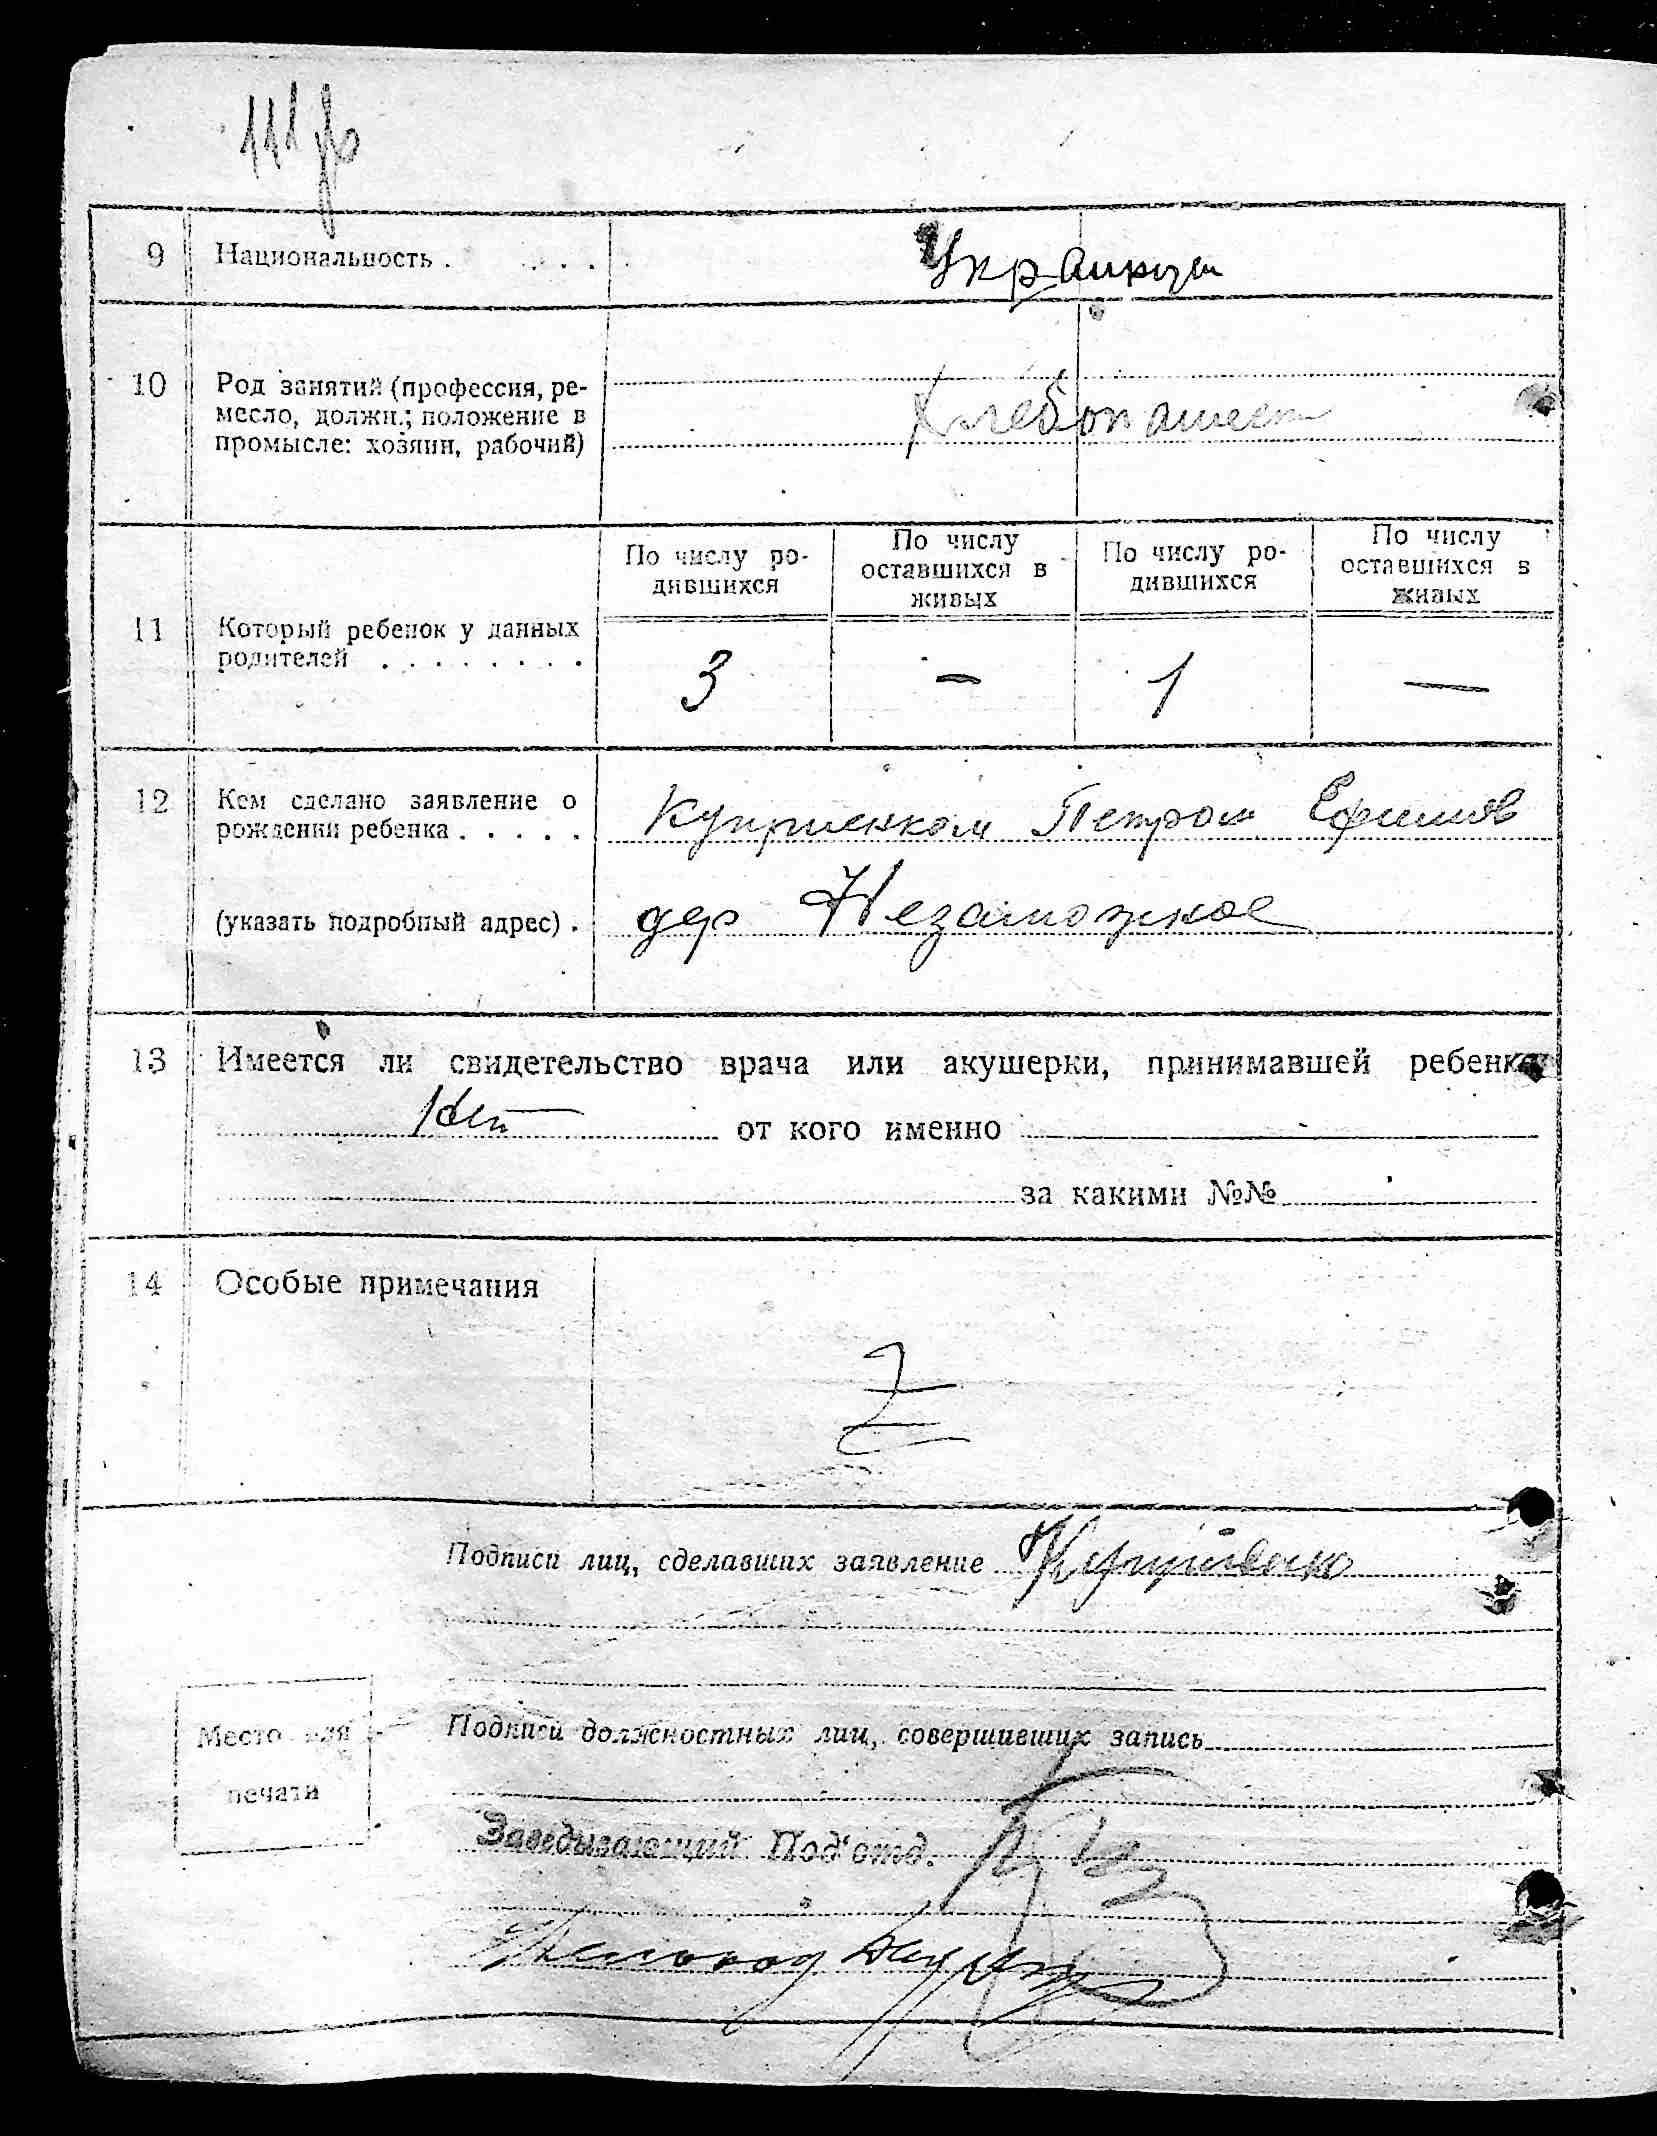 111 об
9 Национальность . . . . . Украинцы
10 Род занятий (профессия, ре-
месло, должн.; положение в
промысле: хозяин, рабочий)
Хлебопашест
По числу ро-
дившихся
По числу
оставшихся в
живых
По числу ро-
дившихся
По числу
оставшихся в
живых
11 Который ребенок у данных
родителей . . . . . . . .
3 — 1 —
12 Кем сделано заявление о
рождении ребенка . . . . .
Куприенком Петром Ефимов
(указать подробный адрес) . дер Незаможное
13 Имеется ли свидетельство врача или акушерки, принимавшей ребенка
Нет от кого именно
за какими №№
14 Особые примечания
Z
Подписи лиц, сделавших заявление
Место для
печати
Подписи должностных лиц, совершивших запись
Заведывающий Под'отд.